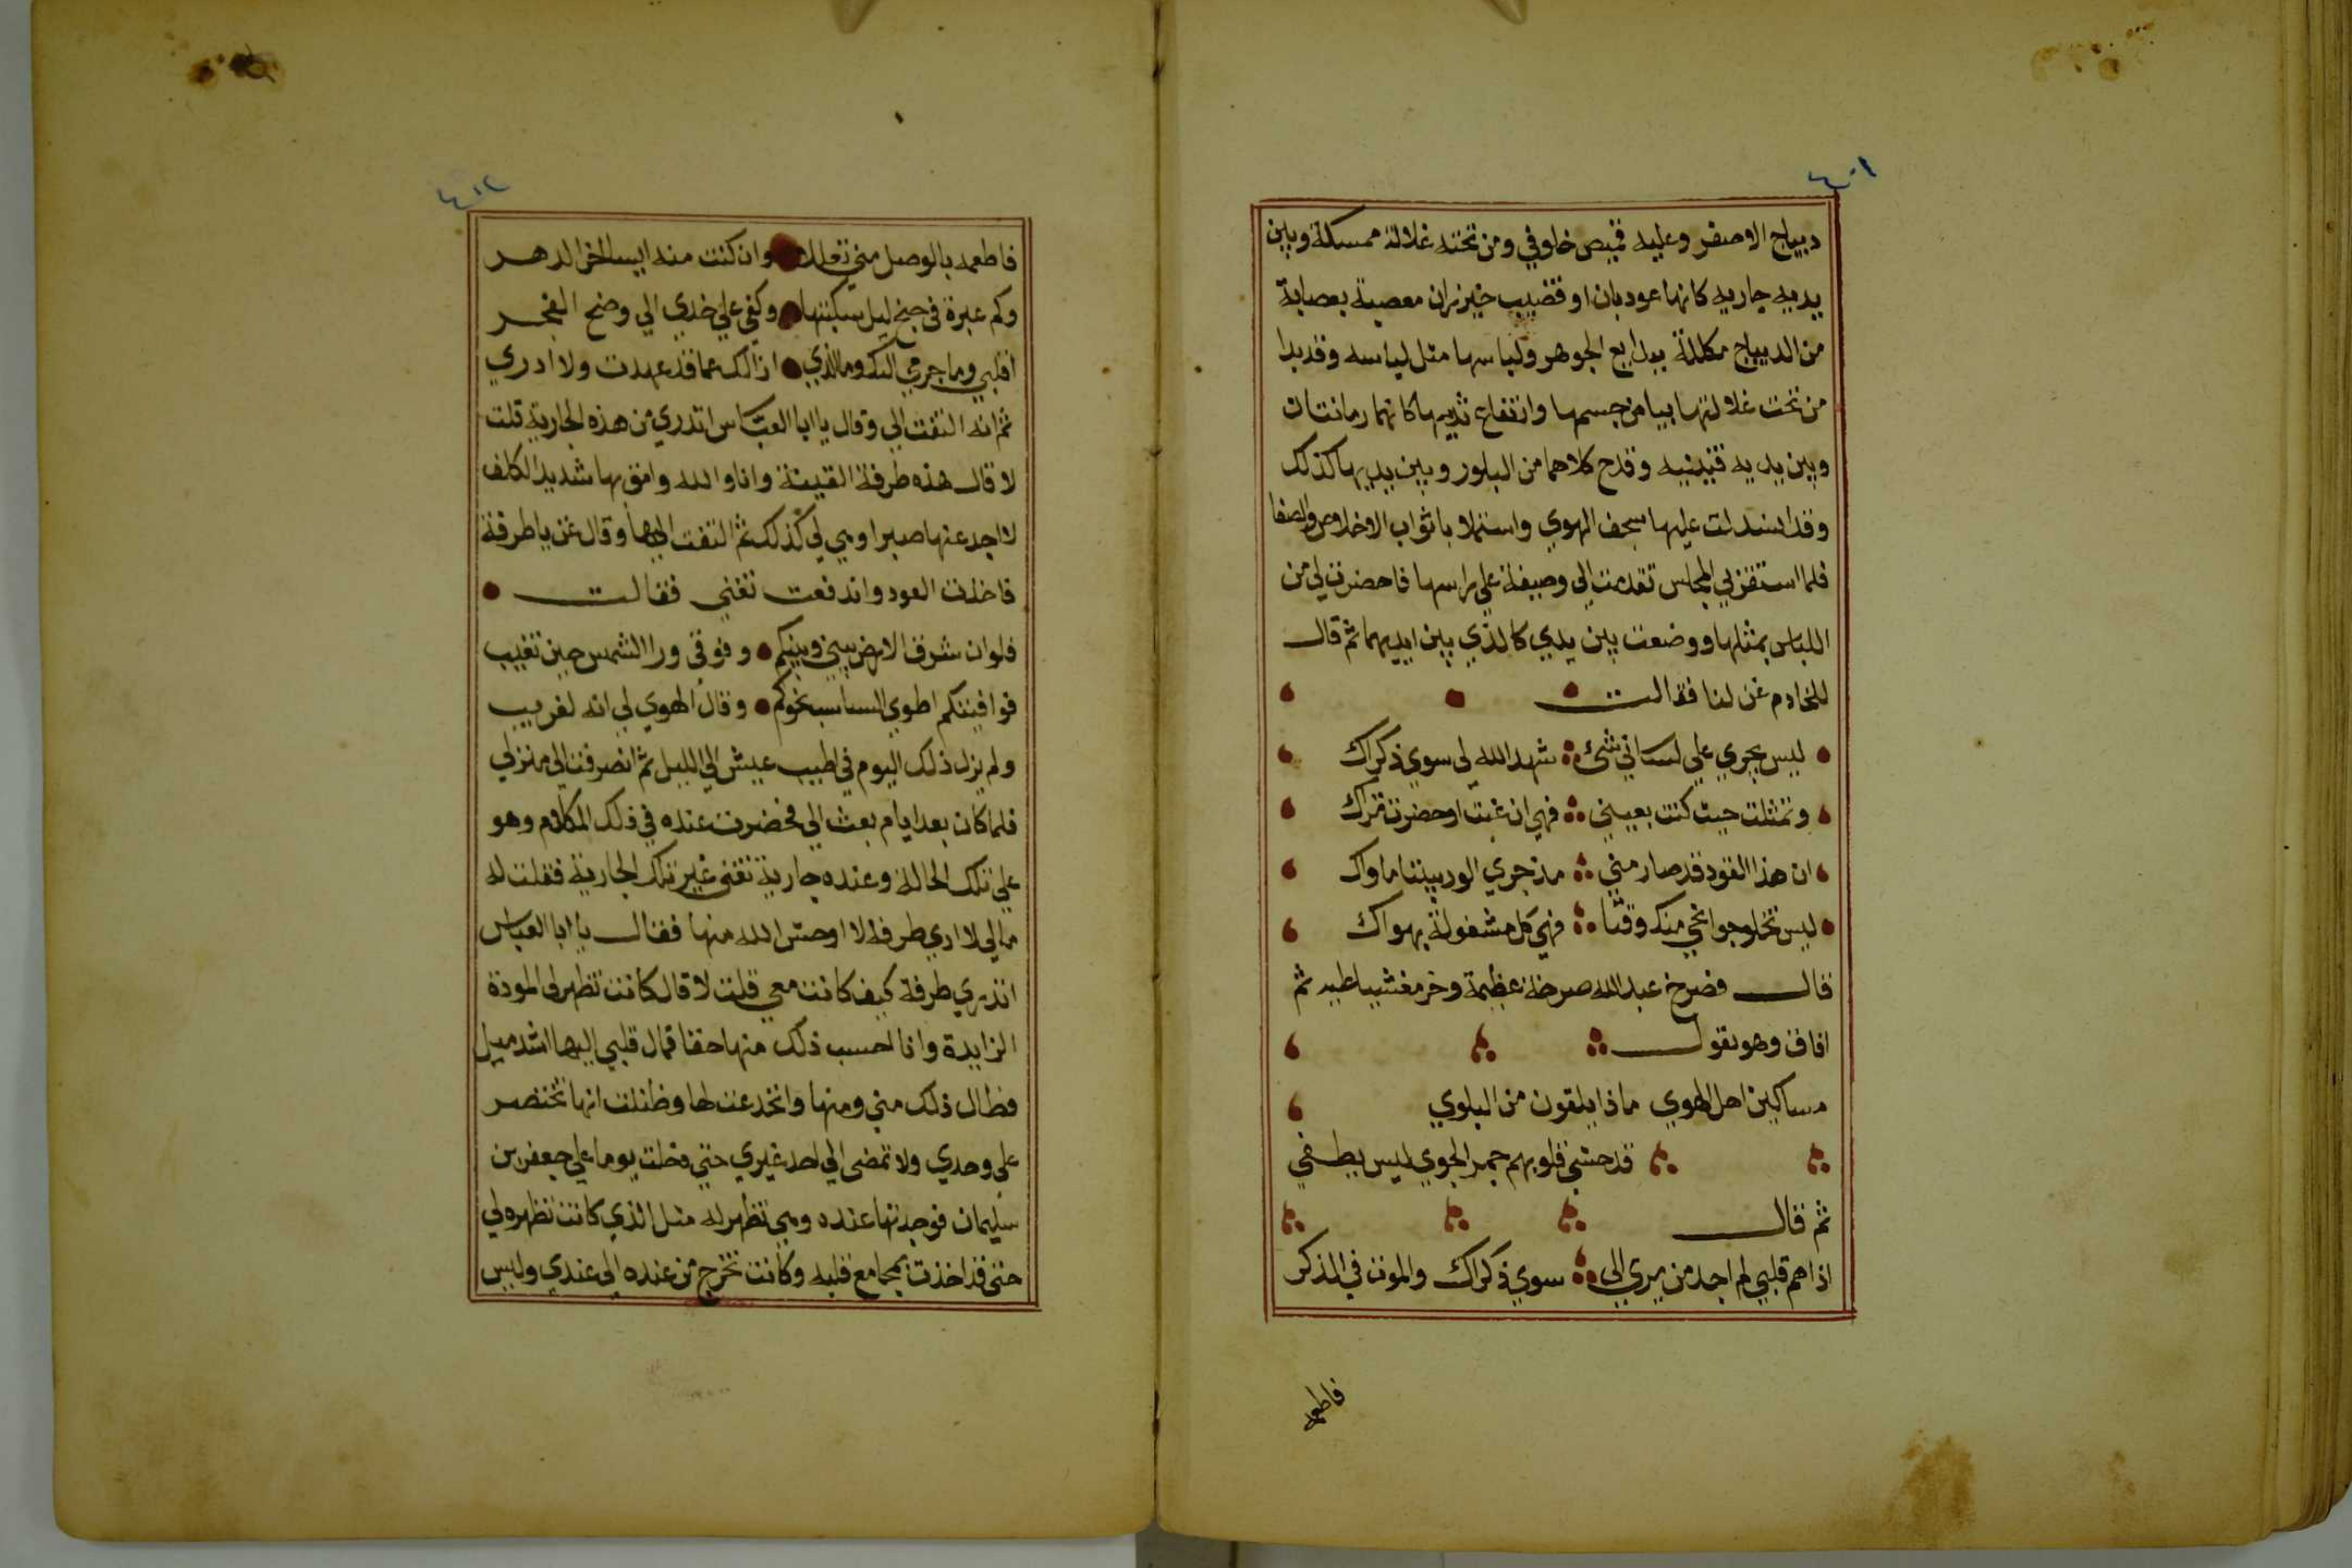 ٤٠١
ديباج الاصفر وعليه قميص خلوقي ومن تحته غلالة ممسكة وبين
يديه جاريه كانها عود بان او قضيب خيزران معصبة بعصابة
من الديباج مكللة ببدايع الجوهر ولباسها مثل لباسه وقد بدا
من تحت غلالتها بياض جسمها وانتفاع ثديها كانهما رمانتان
وبين يديه قنينيه وقدح كلاهما من البلور وبين يديها كذلك
وقد انسدلت عليها سجف الهوي واستملا باثواب الاخلاص والصفا
فلما استقر بي المجلس تقدمت الي وصيفة علي راسها فاحضرت لي من
اللباس بمثلها ووضعت بين يدي كالذي بين ايديهما ثم قال
للخادم غن لنا فقالت
ليس يجري علي لساني شئ شهد الله لي سوي ذكراك
وتمثلت حيث كنت بعيني فهي ان غبت او حضرت تراك
ان هذا الفود قد صار مني مذ جري الود بيننا ماواك
ليس تخلو جوانحي منك وقتا فهي كل مشغولة بهواك
قال فصرخ عبد الله صرخة عظيمة وخر مغشيا عليه ثم
افاق وهو يقول
مساكين اهل الهوي ماذا يلقون من البلوي
قد حشي قلوبهم جمر الجوي ليس يطفي
ثم قال
اذا هم قلبي لم اجد من يري الي سوي ذكراك والموت في الذكر
فاطعمه
٤٠٢
فاطعمه بالوصل مني تعللا وان كنت منه ايسا اخر الدهر
وكم عبرة في جنح ليل سكبتها وكفي علي خدي الي وضح الفجر
اقلبي وما جري اليك وما الذي ازالك عما قد عهدت ولا ادري
ثم انه التفت الي وقال يا ابا العباس اتدري من هذه الجارية قلت
لا قال هذه طرفة القينة وانا والله وامق بها شديد الكلف
لا اجد عنها صبرا وهي لي كذلك ثم التفت اليها وقال غن يا طرفة
فاخذت العود واندفعت تغني فقالت
فلو ان شرق الارض بيني وبينكم وفوقي ورا الشمس حين تغيب
فوافيتكم اطوي السباسب نحوكم وقال الهوي لي انه لقريب
ولم يزل ذلك اليوم في اطيب عيش الي الليل ثم انصرفت الي منزلي
فلما كان بعد ايام بعث الي فحضرت عنده في ذلك المكلام وهو
علي تلك الحالة وعنده جارية تغني غير تلك الجارية فقلت له
مالي لا اري طرفة لا اوحش الله منها فقال يا ابا العباس
اتدري طرفة كيف كانت معي قلت لا قال كانت تظهر لي المودة
الزايدة وانا احسب ذلك منها حقا فمال قلبي اليها اشد ميل
فطال ذلك مني ومنها وانخدعت لها وظننت انها تختصر
علي وحدي ولا تمضي الي احد غيري حتي دخلت يوما علي جعفر بن
سليمان فوجدتها عنده وهي تظهر له مثل الذي كانت تظهره لي
حتي قد اخذت بمجامع قلبه وكانت تخرج من عنده الي عندي وليس